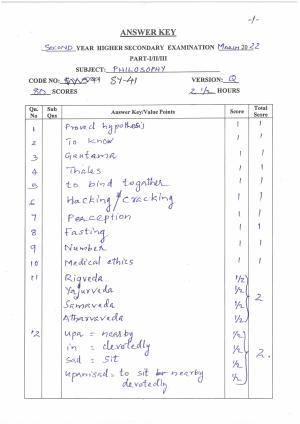 -1-
ANSWER KEY
SECOND YEAR HIGHER SECONDARY EXAMINATION March 2022
PART-I/II/III
SUBJECT: PHILOSOPHY
CODE NO: SY-41 VERSION: Q
80 SCORES 2 1/2 HOURS
Qn. No Sub Qns Answer Key/Value Points Score Total Score
1 Proved hypothesis 1 1
2 To know 1 1
3 Gautama 1 1
4 Thales 1 1
5 to bind together 1 1
6 Hacking / Cracking 1 1
7 Perception 1 1
8 Fasting 1 1
9 Number 1 1
10 Medical ethics 1 1
11 Rigveda 1/2
Yajurveda 1/2
Samaveda 1/2 2
Atharvaveda 1/2
12 upa = nearby 1/2
in = devotedly 1/2
sad = sit 1/2 2.
upanisad = to sit nearby 1/2
devotedly